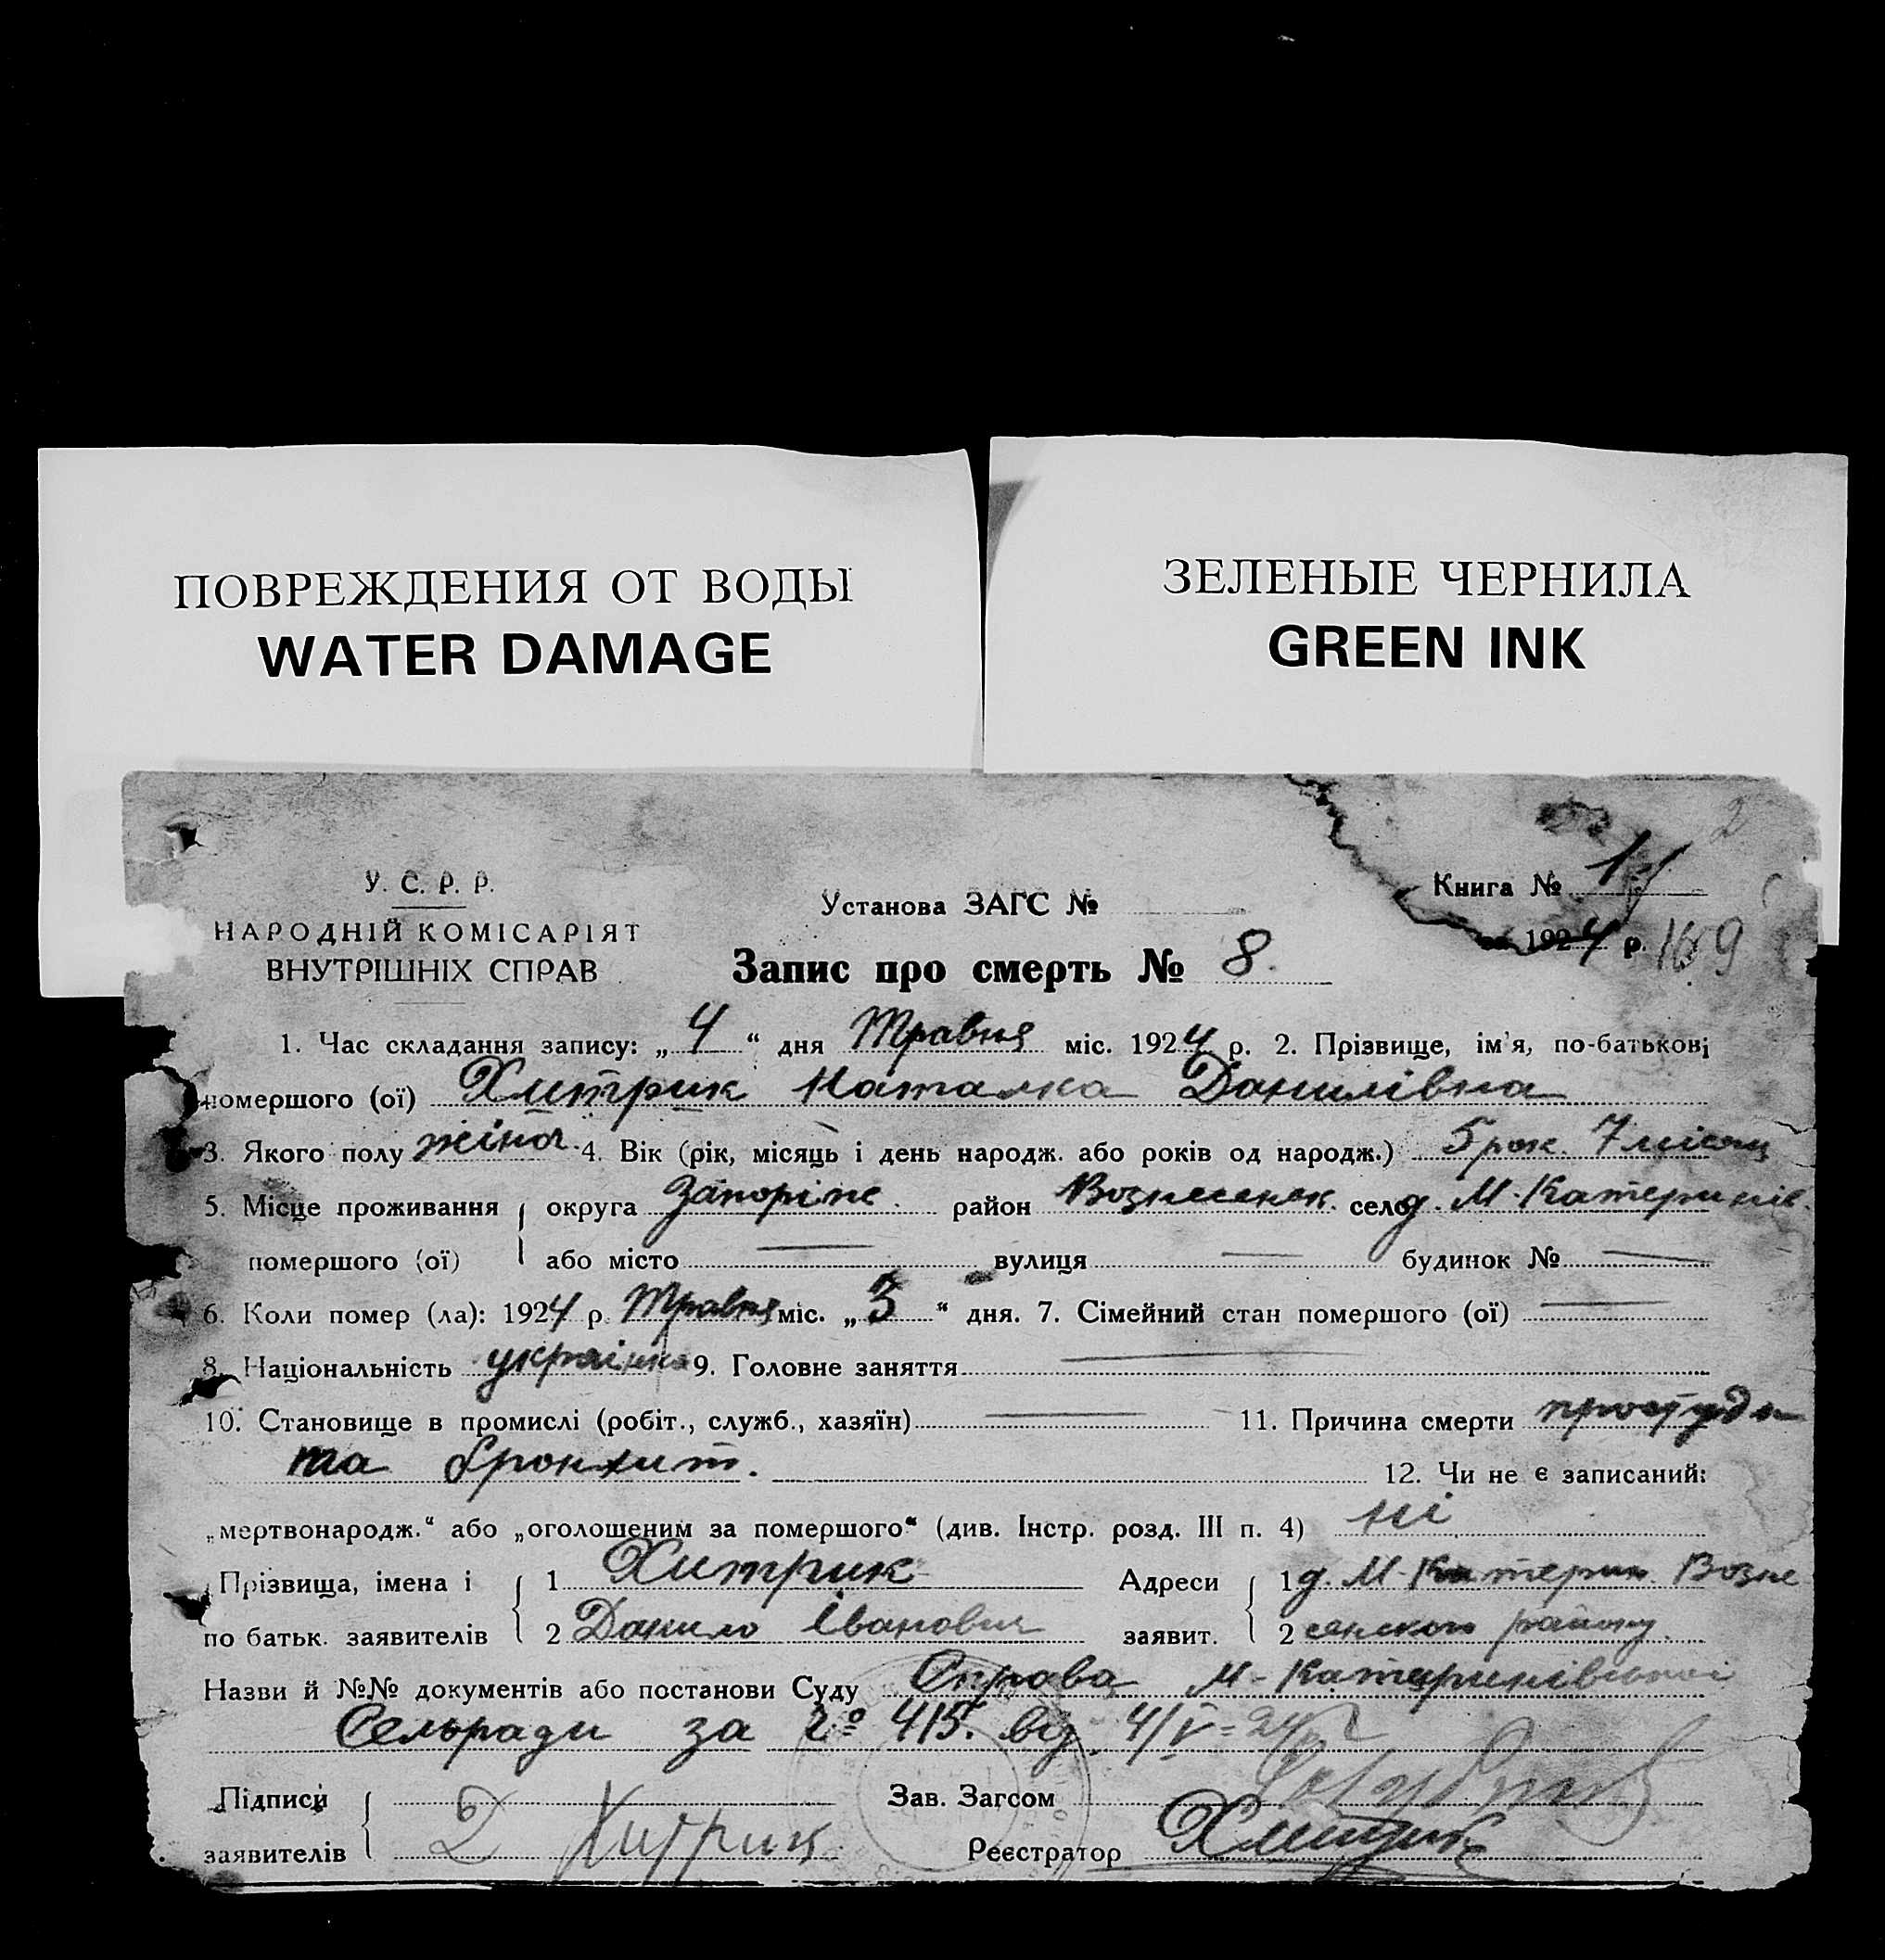 ПОВРЕЖДЕНИЯ ОТ ВОДЫ
WATER DAMAGE
ЗЕЛЕНЫЕ ЧЕРНИЛА
GREEN INK
2
У. С. Р. Р.
НАРОДНІЙ КОМІСАРІЯТ
ВНУТРІШНІХ СПРАВ
Установа ЗАГС №
Запис про смерть № 8.
Книга №
1924 р. 169
1. Час складання запису: „4“ дня Травня міс. 1924 р. 2. Прізвище, ім'я, по-батькові
помершого (ої) Хитрик Наталка Данилівна
3. Якого полу жіноч. 4. Вік (рік, місяць і день народж. або років од народж.) 5 рок. 7 місяц
5. Місце проживання округа Запоріж. район Вознесенск. село д. М-Катеринів.
помершого (ої) або місто — вулиця — будинок № —
6. Коли помер (ла): 1924 р. Травня міс. „3“ дня. 7. Сімейний стан помершого (ої) —
8. Національність українка 9. Головне заняття —
10. Становище в промислі (робіт., служб., хазяїн) — 11. Причина смерти простуда
та бронхит. 12. Чи не є записаний:
„мертвонародж.“ або „оголошеним за помершого“ (див. Інстр. розд. III п. 4) ні
Прізвища, імена і 1 Хитрик Адреси 1 д. М-Катерин Возне
по батьк. заявителів 2 Данило Іванович заявит. 2 сенского району.
Назви й №№ документів або постанови Суду Справа М-Катеринівської
Сельради за № 415. від 4/V-24
Підписи Зав. Загсом
заявителів Д Хитрик Реєстратор